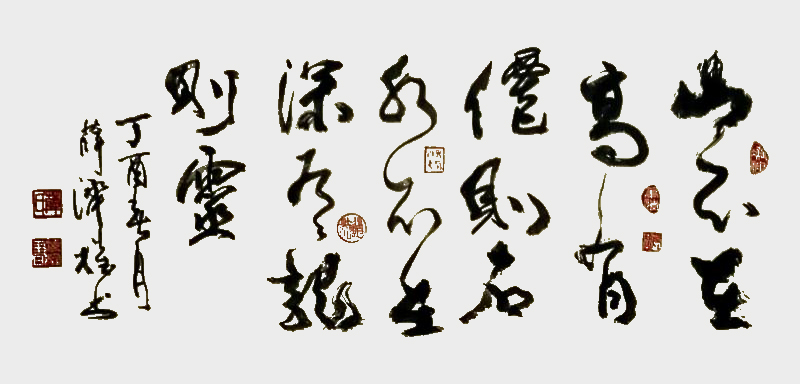 山不在
高有
僊則名
水不在
深有龍
則靈
丁酉春月
薛澤雄书